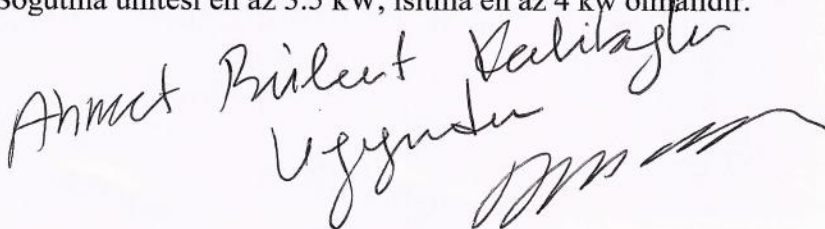 soğutma ünitesi en az 3.5 kW, ısıtma en az 4 kw olmalıdır.
Ahmet Bülent
Uygundur